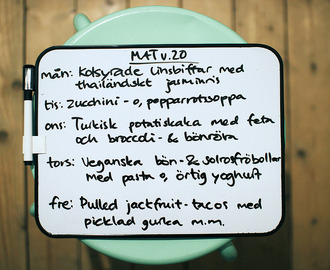 MAT v.20
mån: Kolsyrade linsbiffar med
thailändskt jasminris
tis: zucchini- o, pepparrotssoppa
ons: Turkisk potatiskaka med feta
och broccoli- & bönröra
tors: Veganska bön- & solrosfröbollar
med pasta o, örtig yoghurt
fre: Pulled jackfruit-tacos med
picklad gurka m.m.